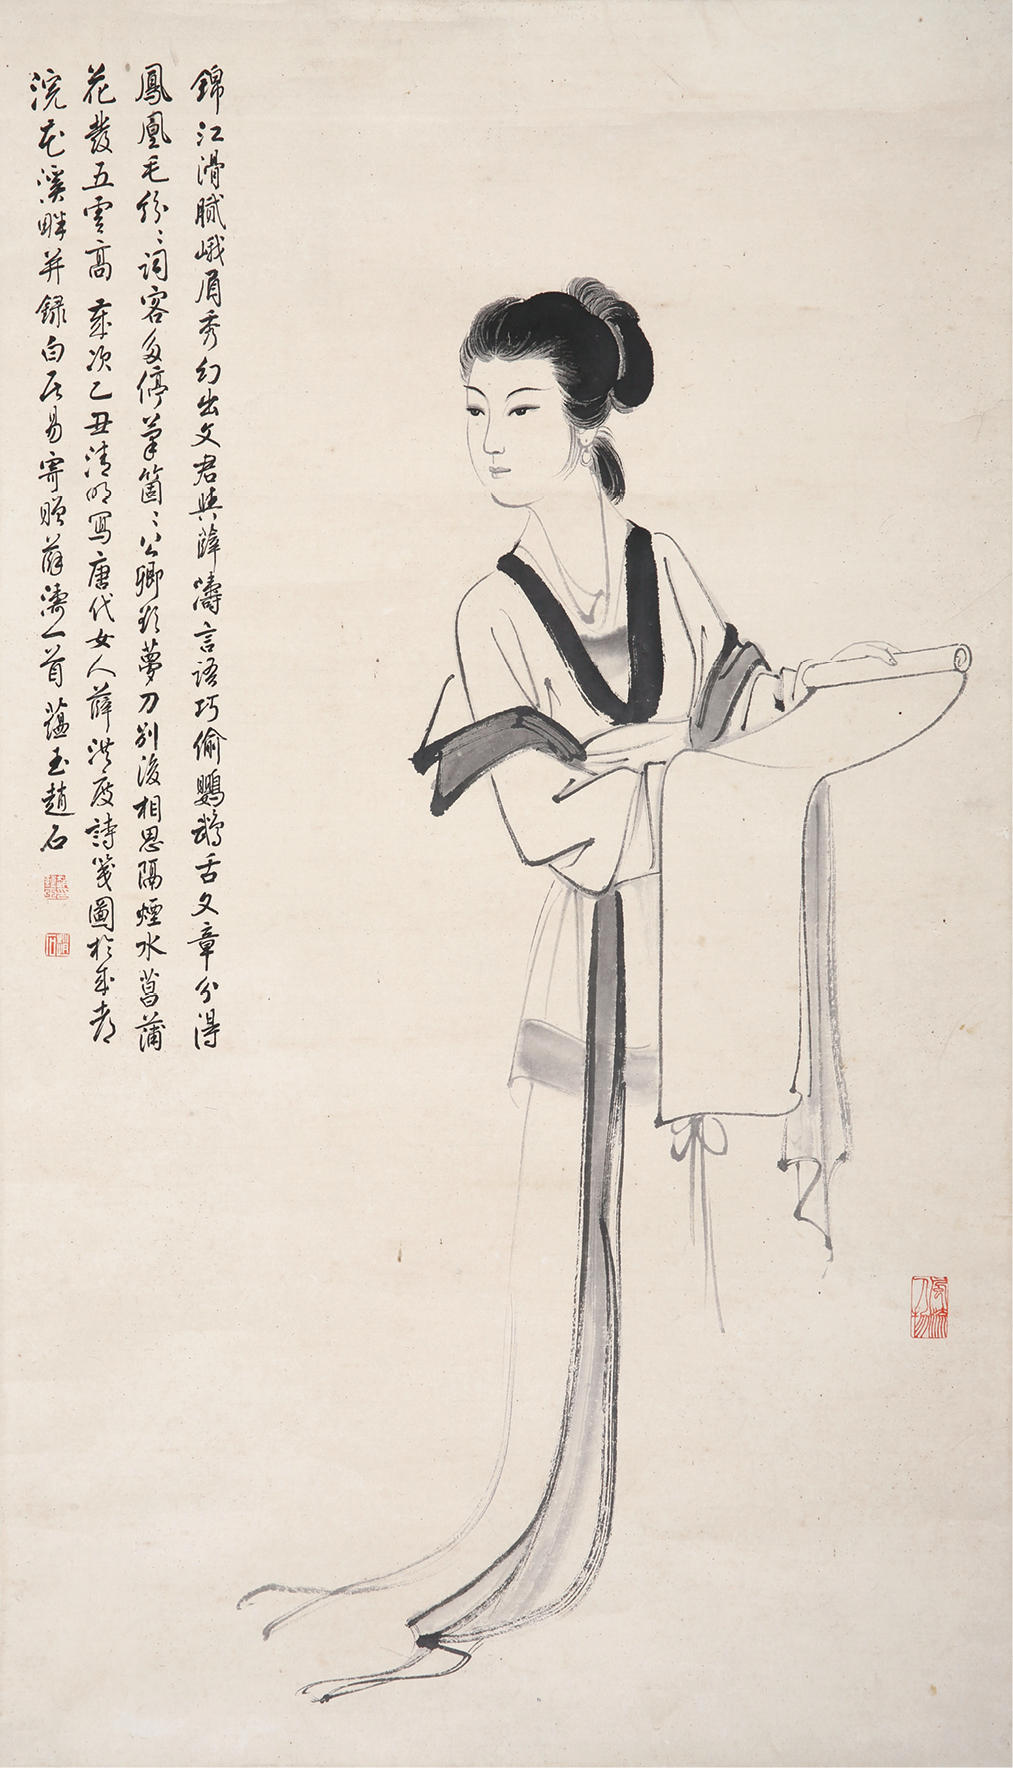 錦江滑膩峨眉秀幻出文君與薛濤言語巧偷鸚鵡舌文章分得
鳳凰毛紛紛詞客多停筆箇箇公卿欲夢刀別後相思隔煙水菖蒲
花發五雲高 歲次乙丑清明寫唐代女人薛洪度詩箋圖於成都
浣花溪畔并錄白居易寄贈薛濤一首 蘊玉趙石
風流人物